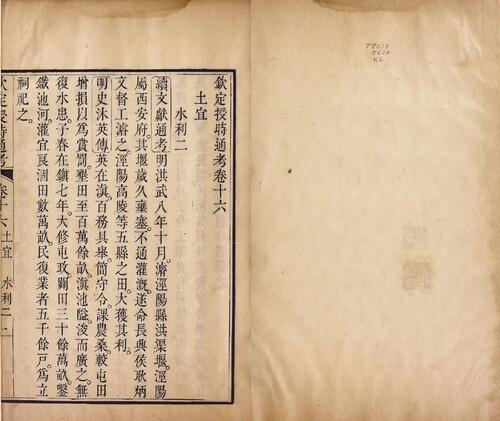 T8038
5624
K6
欽定授時通考卷十六
土宜
水利二
續文獻通考明洪武八年十月濬涇陽縣洪渠堰涇陽
屬西安府其堰歲久壅塞不通灌漑遂命長興侯耿炳
文督工濬之涇陽高陵等五縣之田大獲其利
明史沐英傳英在滇百務具舉簡守令課農桑較屯田
增損以爲賞罰墾田至百萬餘畝滇池隘浚而廣之無
復水患子春在鎭七年大修屯政闢田三十餘萬畝鑿
鐵池河灌宜良涸田數萬畝民復業者五千餘戸爲立
祠祀之
欽定授時通考 卷十六 土宜 水利二 一